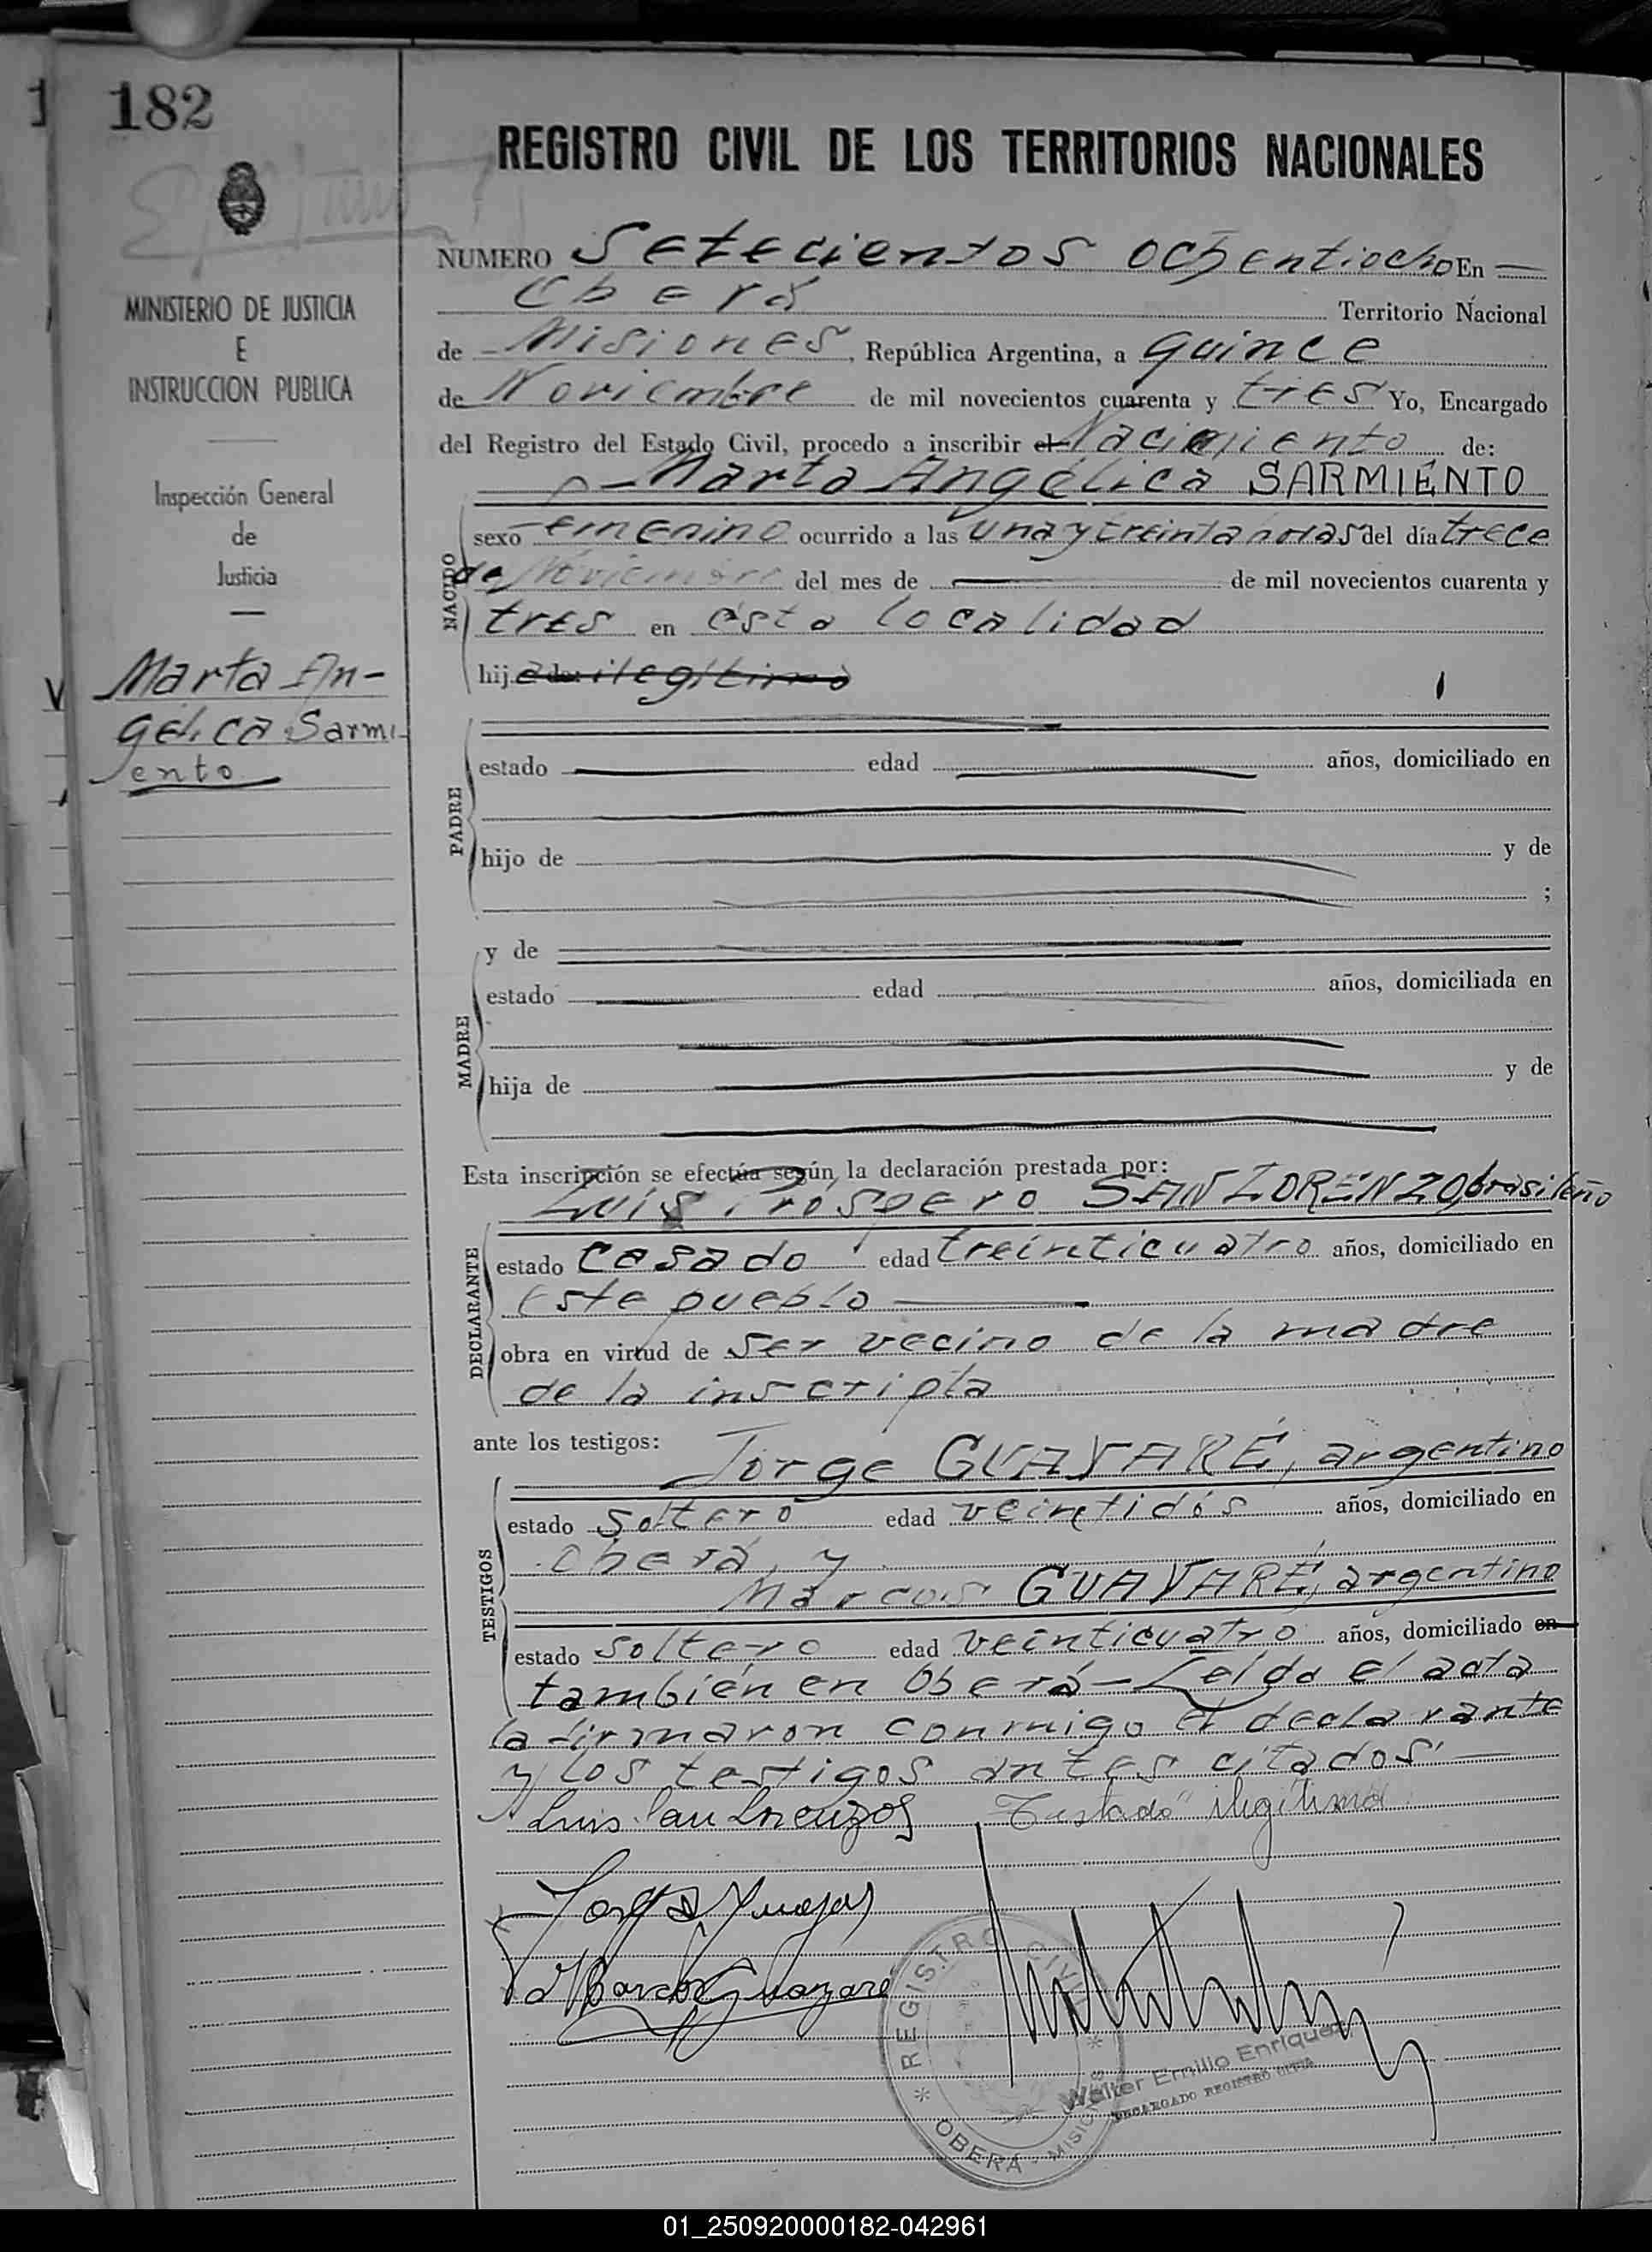 182
REGISTRO CIVIL DE LOS TERRITORIOS NACIONALES
MINISTERIO DE JUSTICIA
E
INSTRUCCION PUBLICA
Inspección General
de
Justicia
Marta An-
gélica Sarmi-
ento
NUMERO Setecientos ochentiocho En —
Oberá Territorio Nacional
de — Misiones, República Argentina, a quince
de Noviembre de mil novecientos cuarenta y tres Yo, Encargado
del Registro del Estado Civil, procedo a inscribir el Nacimiento de:
Marta Angélica SARMIENTO
NACIDO
sexo femenino ocurrido a las una y treinta horas del día trece
de Noviembre del mes de — de mil novecientos cuarenta y
tres en ésta localidad
hija de: ilegítima
PADRE
estado edad años, domiciliado en
hijo de y de
;
MADRE
y de
estado edad años, domiciliada en
hija de y de
Esta inscripción se efectúa según la declaración prestada por:
DECLARANTE
Luis Próspero SAN LORENZO, brasileño
estado casado edad treinticuatro años, domiciliado en
este pueblo —
obra en virtud de ser vecino de la madre
de la inscripta
ante los testigos:
TESTIGOS
Jorge GUAYARÉ, argentino
estado soltero edad veintidós años, domiciliado en
Oberá, y
Marcos GUAYARÉ, argentino
estado soltero edad veinticuatro años, domiciliado en
también en Oberá — Leída el acta
la firmaron conmigo el declarante
y los testigos antes citados. —
Luis San Lorenzo Testado "ilegítima
Marcos Guayaré
* REGISTRO CIVIL *
OBERA - MISIONES
Walter Emilio Enriquez
ENCARGADO REGISTRO CIVIL
01_250920000182-042961